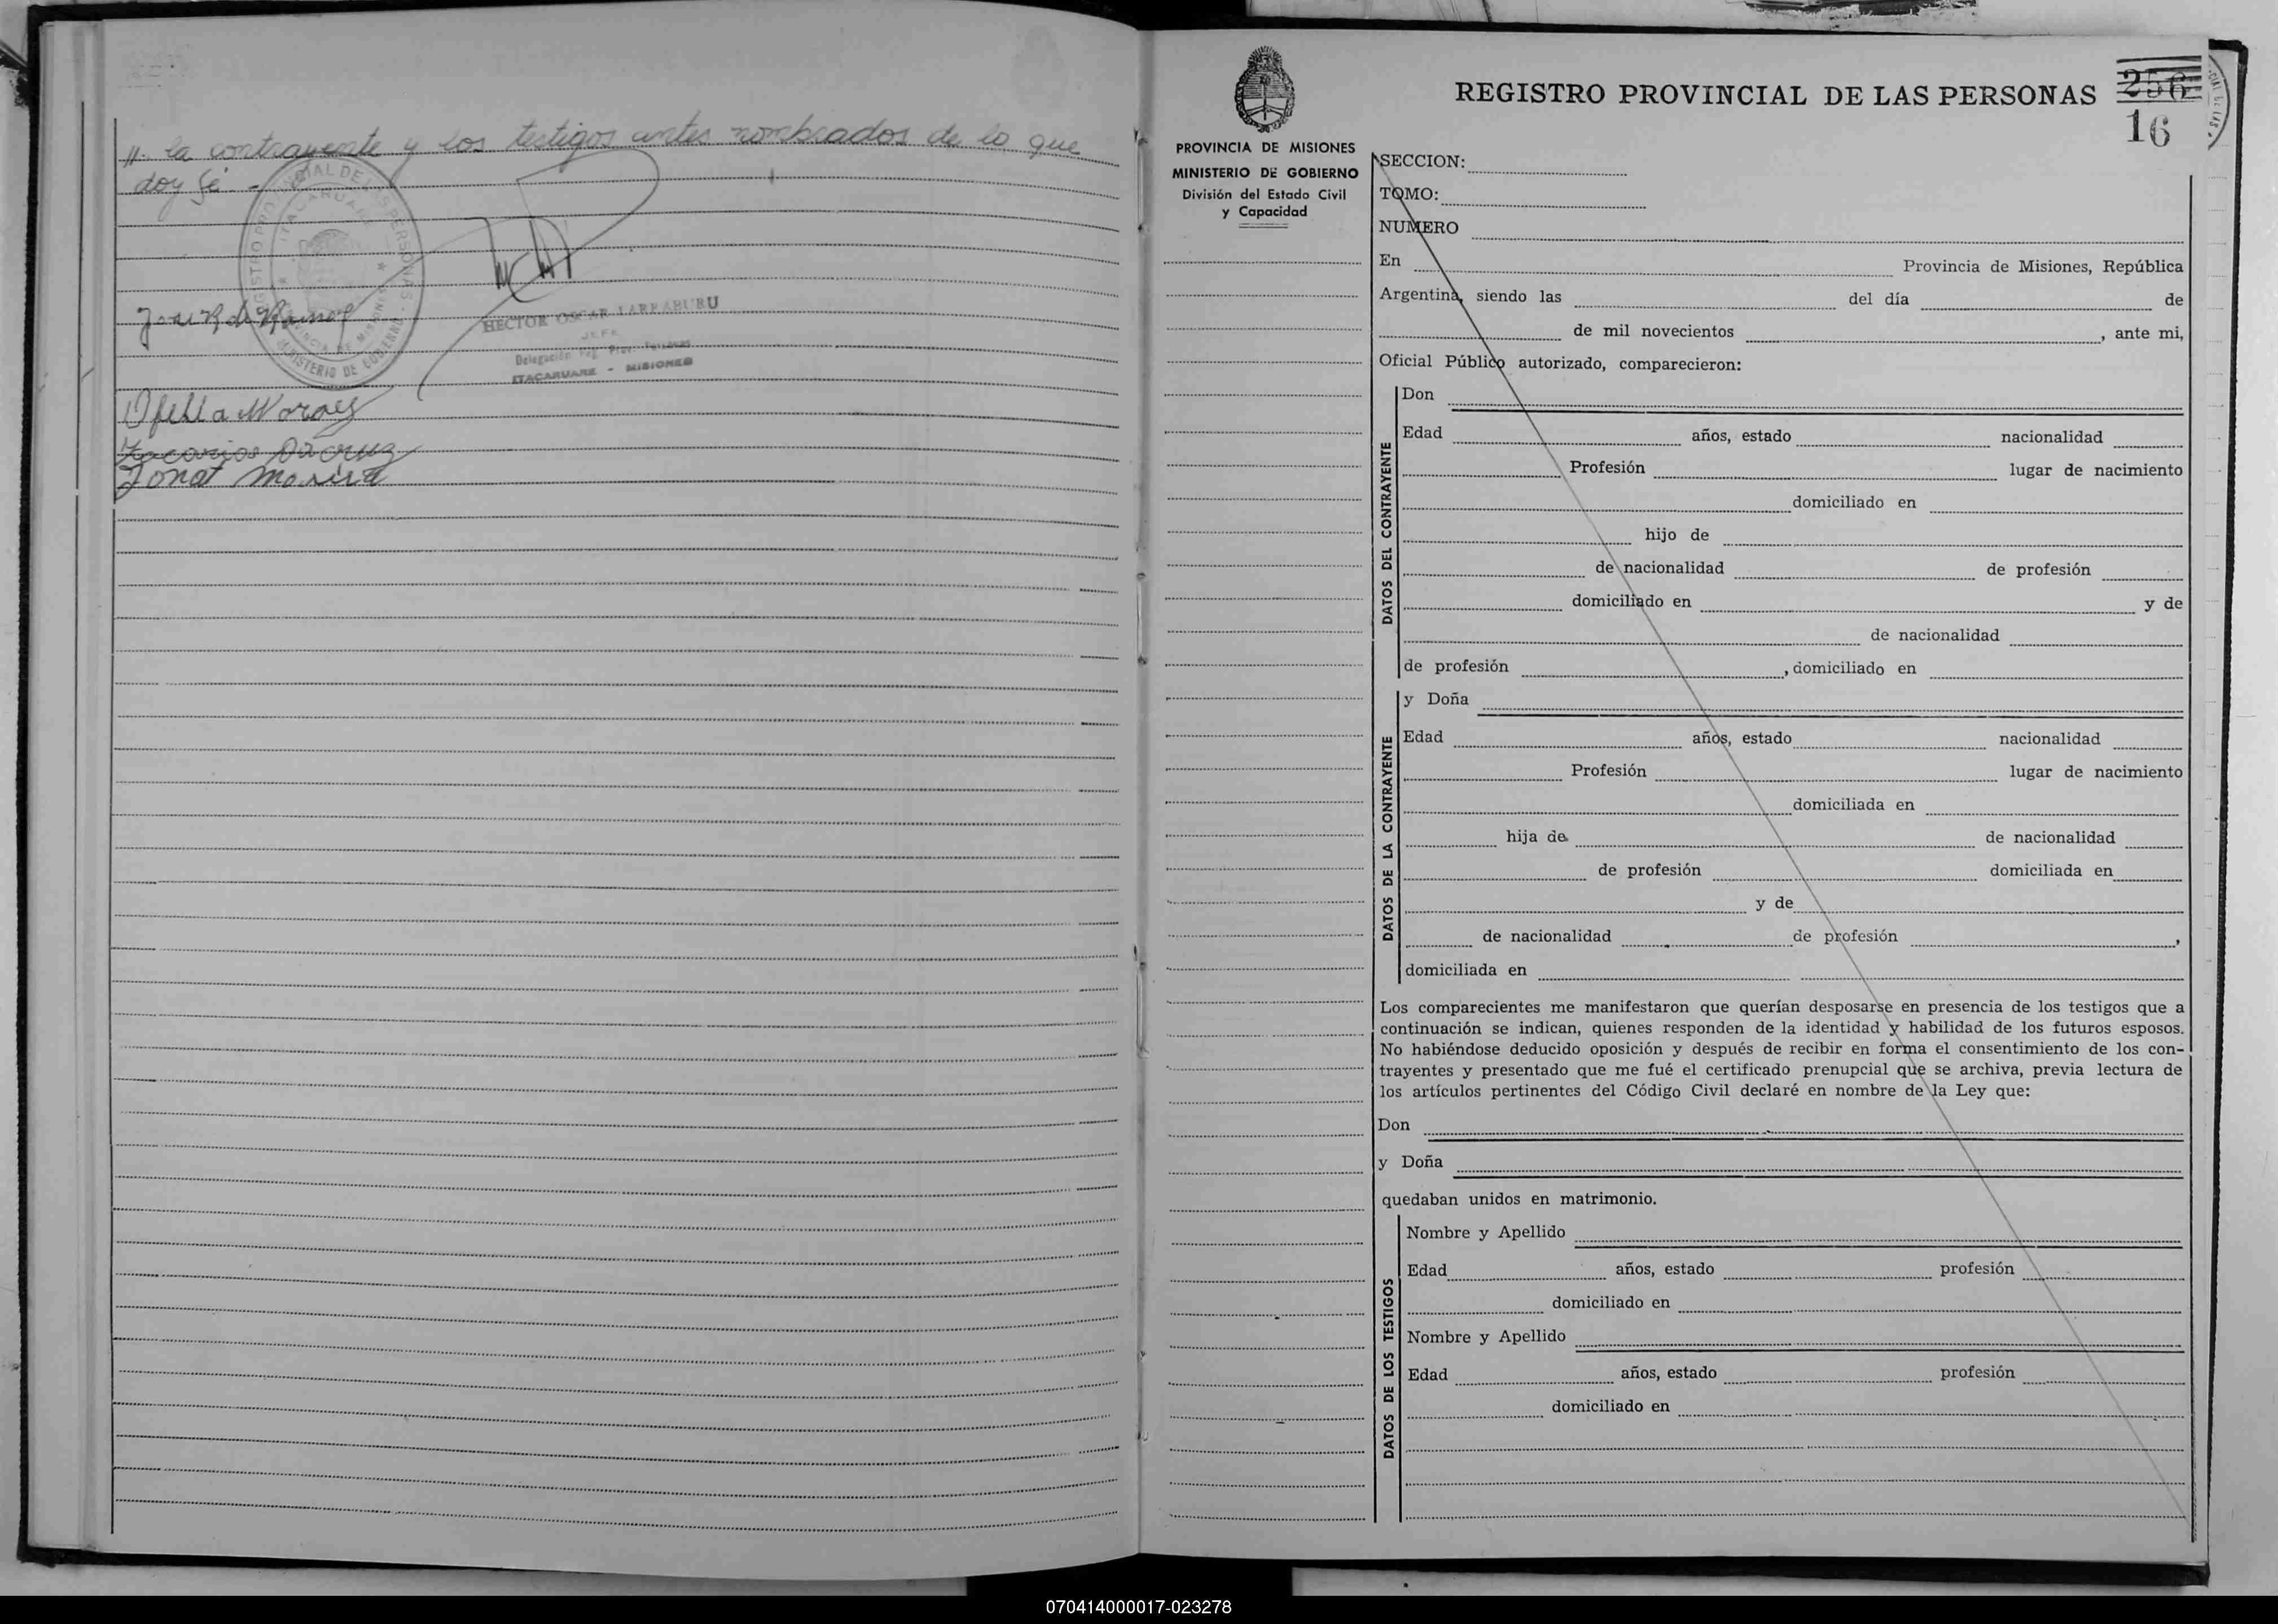 //. la contrayente y los testigos antes nombrados de lo que
doy fé. -
REGISTRO PROVINCIAL DE LAS PERSONAS
ITACARUARE
PROVINCIA DE MISIONES
MINISTERIO DE GOBIERNO
HECTOR OSCAR LARRABURU
JEFE
Delegación Reg. Prov. Personas
ITACARUARE - MISIONES
Jose R de Ramos
Ofelia Moraes
Zacarias Dacruz
PROVINCIA DE MISIONES
MINISTERIO DE GOBIERNO
División del Estado Civil
y Capacidad
REGISTRO PROVINCIAL DE LAS PERSONAS
256
16
SECCION:
TOMO:
NUMERO
En Provincia de Misiones, República
Argentina, siendo las del día de
de mil novecientos , ante mi,
Oficial Público autorizado, comparecieron:
DATOS DEL CONTRAYENTE
Don
Edad años, estado nacionalidad
Profesión lugar de nacimiento
domiciliado en
hijo de
de nacionalidad de profesión
domiciliado en y de
de nacionalidad
de profesión , domiciliado en
DATOS DE LA CONTRAYENTE
y Doña
Edad años, estado nacionalidad
Profesión lugar de nacimiento
domiciliada en
hija de de nacionalidad
de profesión domiciliada en
y de
de nacionalidad de profesión ,
domiciliada en
Los comparecientes me manifestaron que querían desposarse en presencia de los testigos que a
continuación se indican, quienes responden de la identidad y habilidad de los futuros esposos.
No habiéndose deducido oposición y después de recibir en forma el consentimiento de los con-
trayentes y presentado que me fué el certificado prenupcial que se archiva, previa lectura de
los artículos pertinentes del Código Civil declaré en nombre de la Ley que:
Don
y Doña
quedaban unidos en matrimonio.
DATOS DE LOS TESTIGOS
Nombre y Apellido
Edad años, estado profesión
domiciliado en
Nombre y Apellido
Edad años, estado profesión
domiciliado en
070414000017-023278